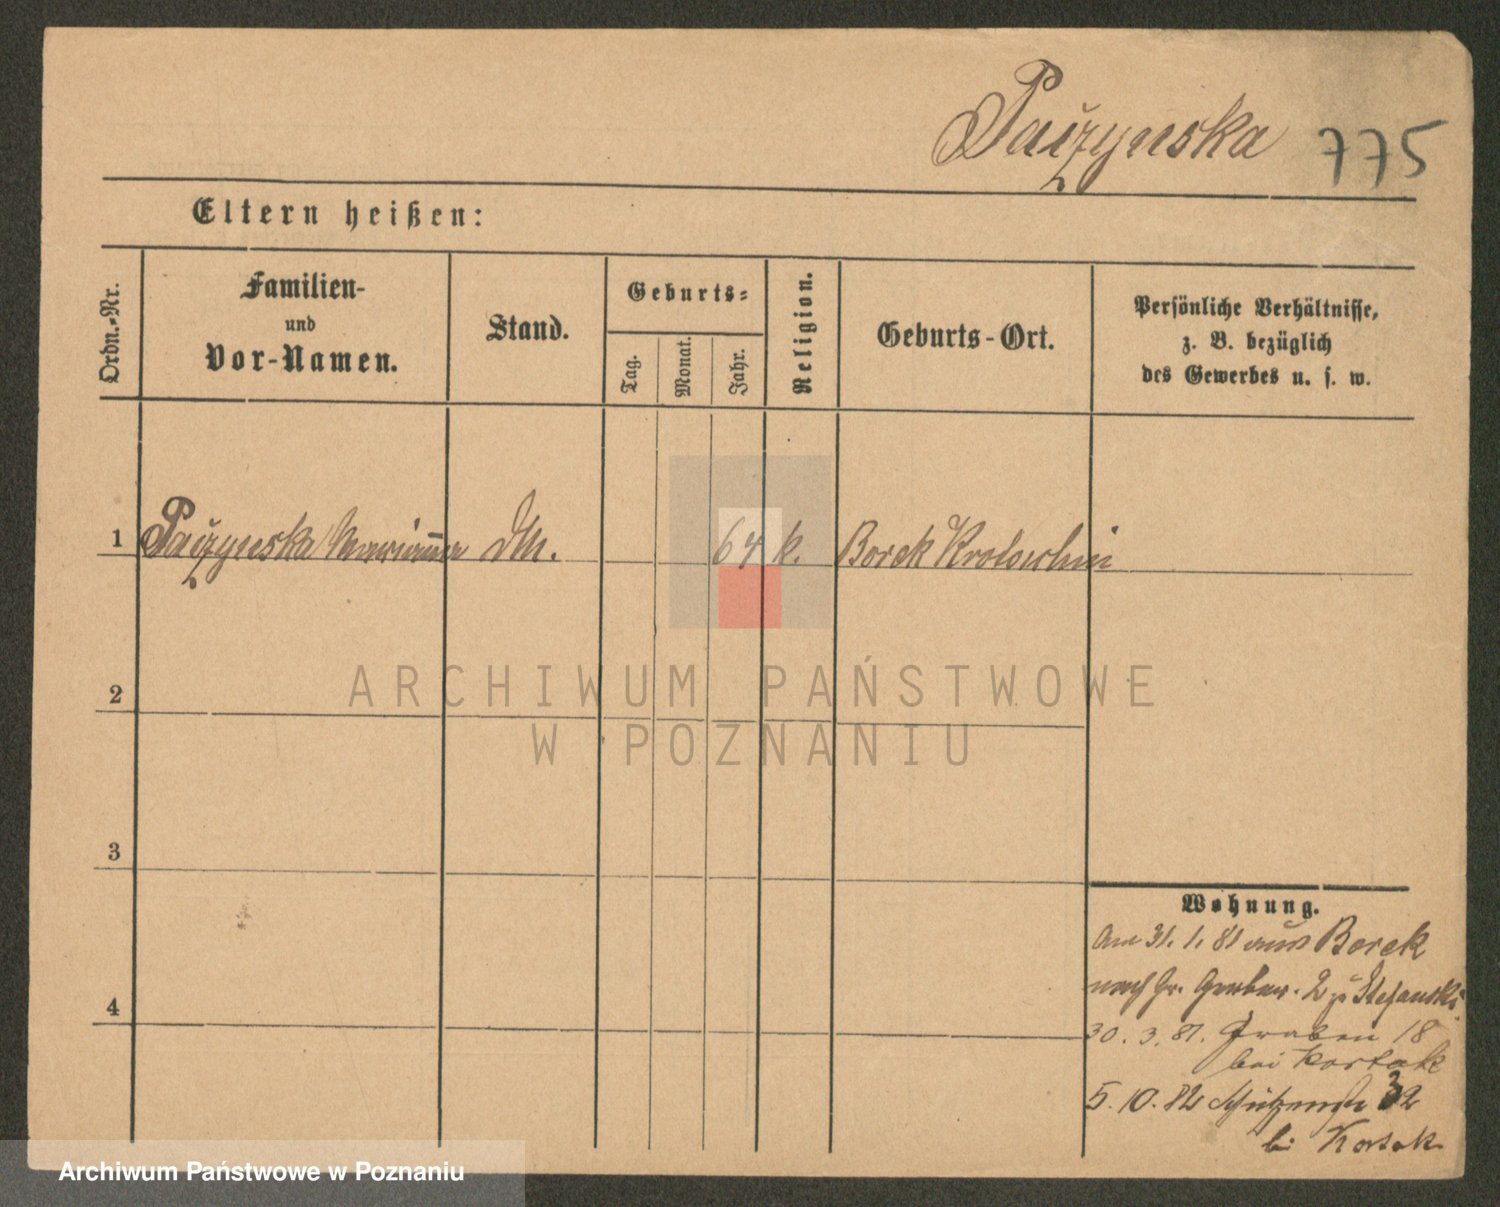 Pażynska 775
Eltern heißen:
Ordn.-Nr.
Familien-
und
Vor-Namen.
Stand.
Geburts-
Tag.
Monat.
Jahr.
Religion.
Geburts-Ort.
Persönliche Verhältnisse,
z. B. bezüglich
des Gewerbes u. s. w.
1 Pażynska Marianna DM. 64 k. Borek Krotoschin
2
3
4
ARCHIWUM PAŃSTWOWE
W POZNANIU
Wohnung.
Am 31. 1. 81 aus Borek
nach Gr. Gerber. 2 zu Stefanski.
30. 3. 81. Graben 18
bei Kortak
5. 10. 82 Schützenstr 32
bei Kortak
Archiwum Państwowe w Poznaniu